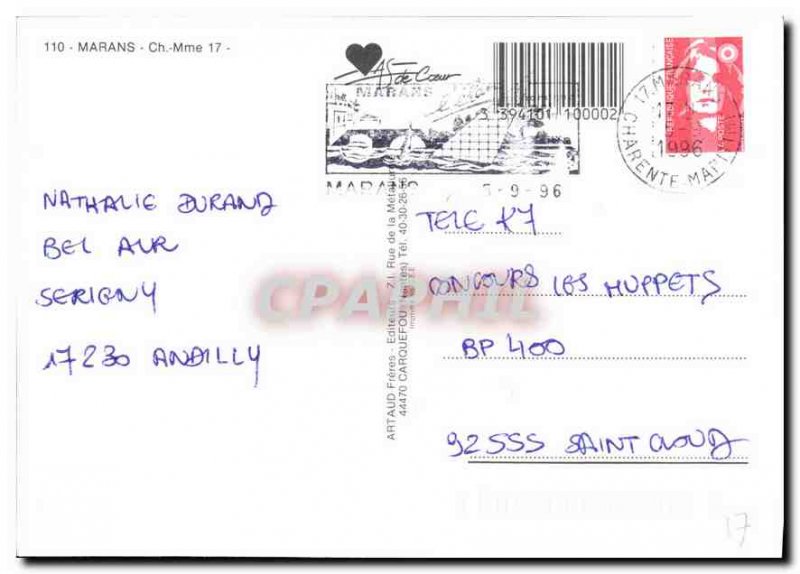 110 - MARANS - Ch.-Mme 17 -
AS de Cœur
MARANS
3 394101 100002
MARANS 5-9-96
17 MARANS
1996
CHARENTE-MARITIME
RÉPUBLIQUE FRANÇAISE
LA POSTE
NATHALIE DURAND
BEL AIR
SERIGNY
17230 ANDILLY
ARTAUD Frères - Editeurs - Z.I. Rue de la Métallurgie
44470 CARQUEFOU (Nantes) Tél. 40-30-26-
CPAPHIL
TELE K7
CONCOURS LES MUPPETS
BP 400
92555 SAINT CLOUD
17